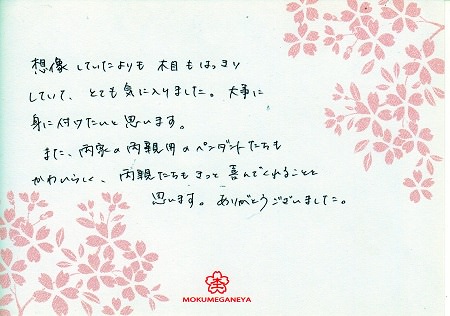 想像していたよりも 木目もはっきり
していて、とても気に入りました。大事に
身に付けたいと思います。
また、両家の両親用のペンダントたちも
かわいらしく、両親たちもきっと喜んでくれることと
思います。ありがとうございました。
杢
MOKUMEGANEYA